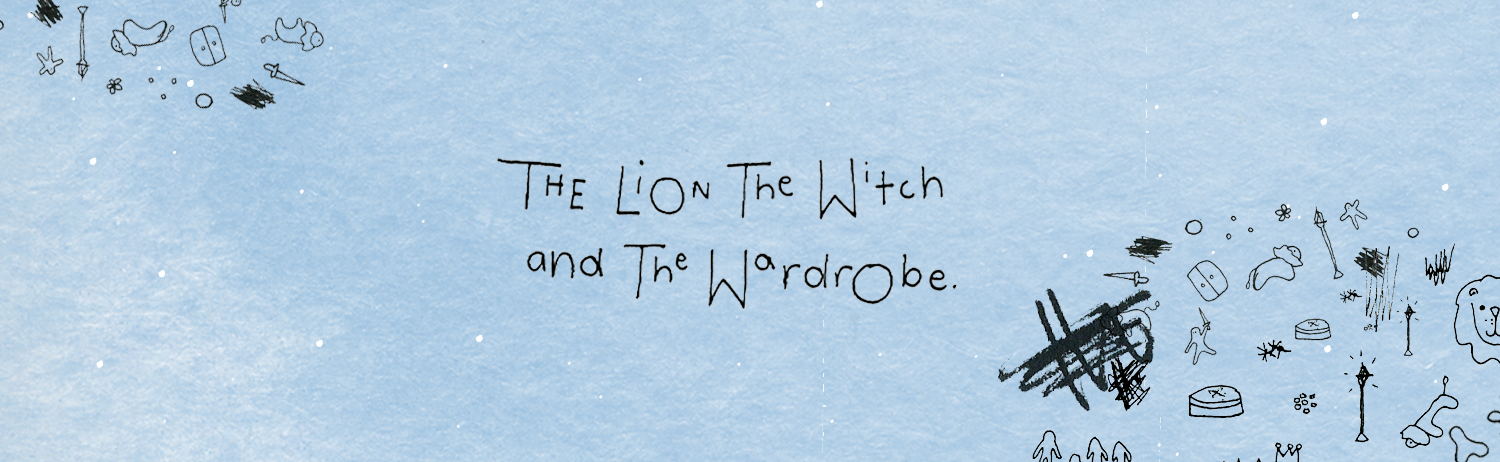 THE LiON The Witch
and The WardrObe.